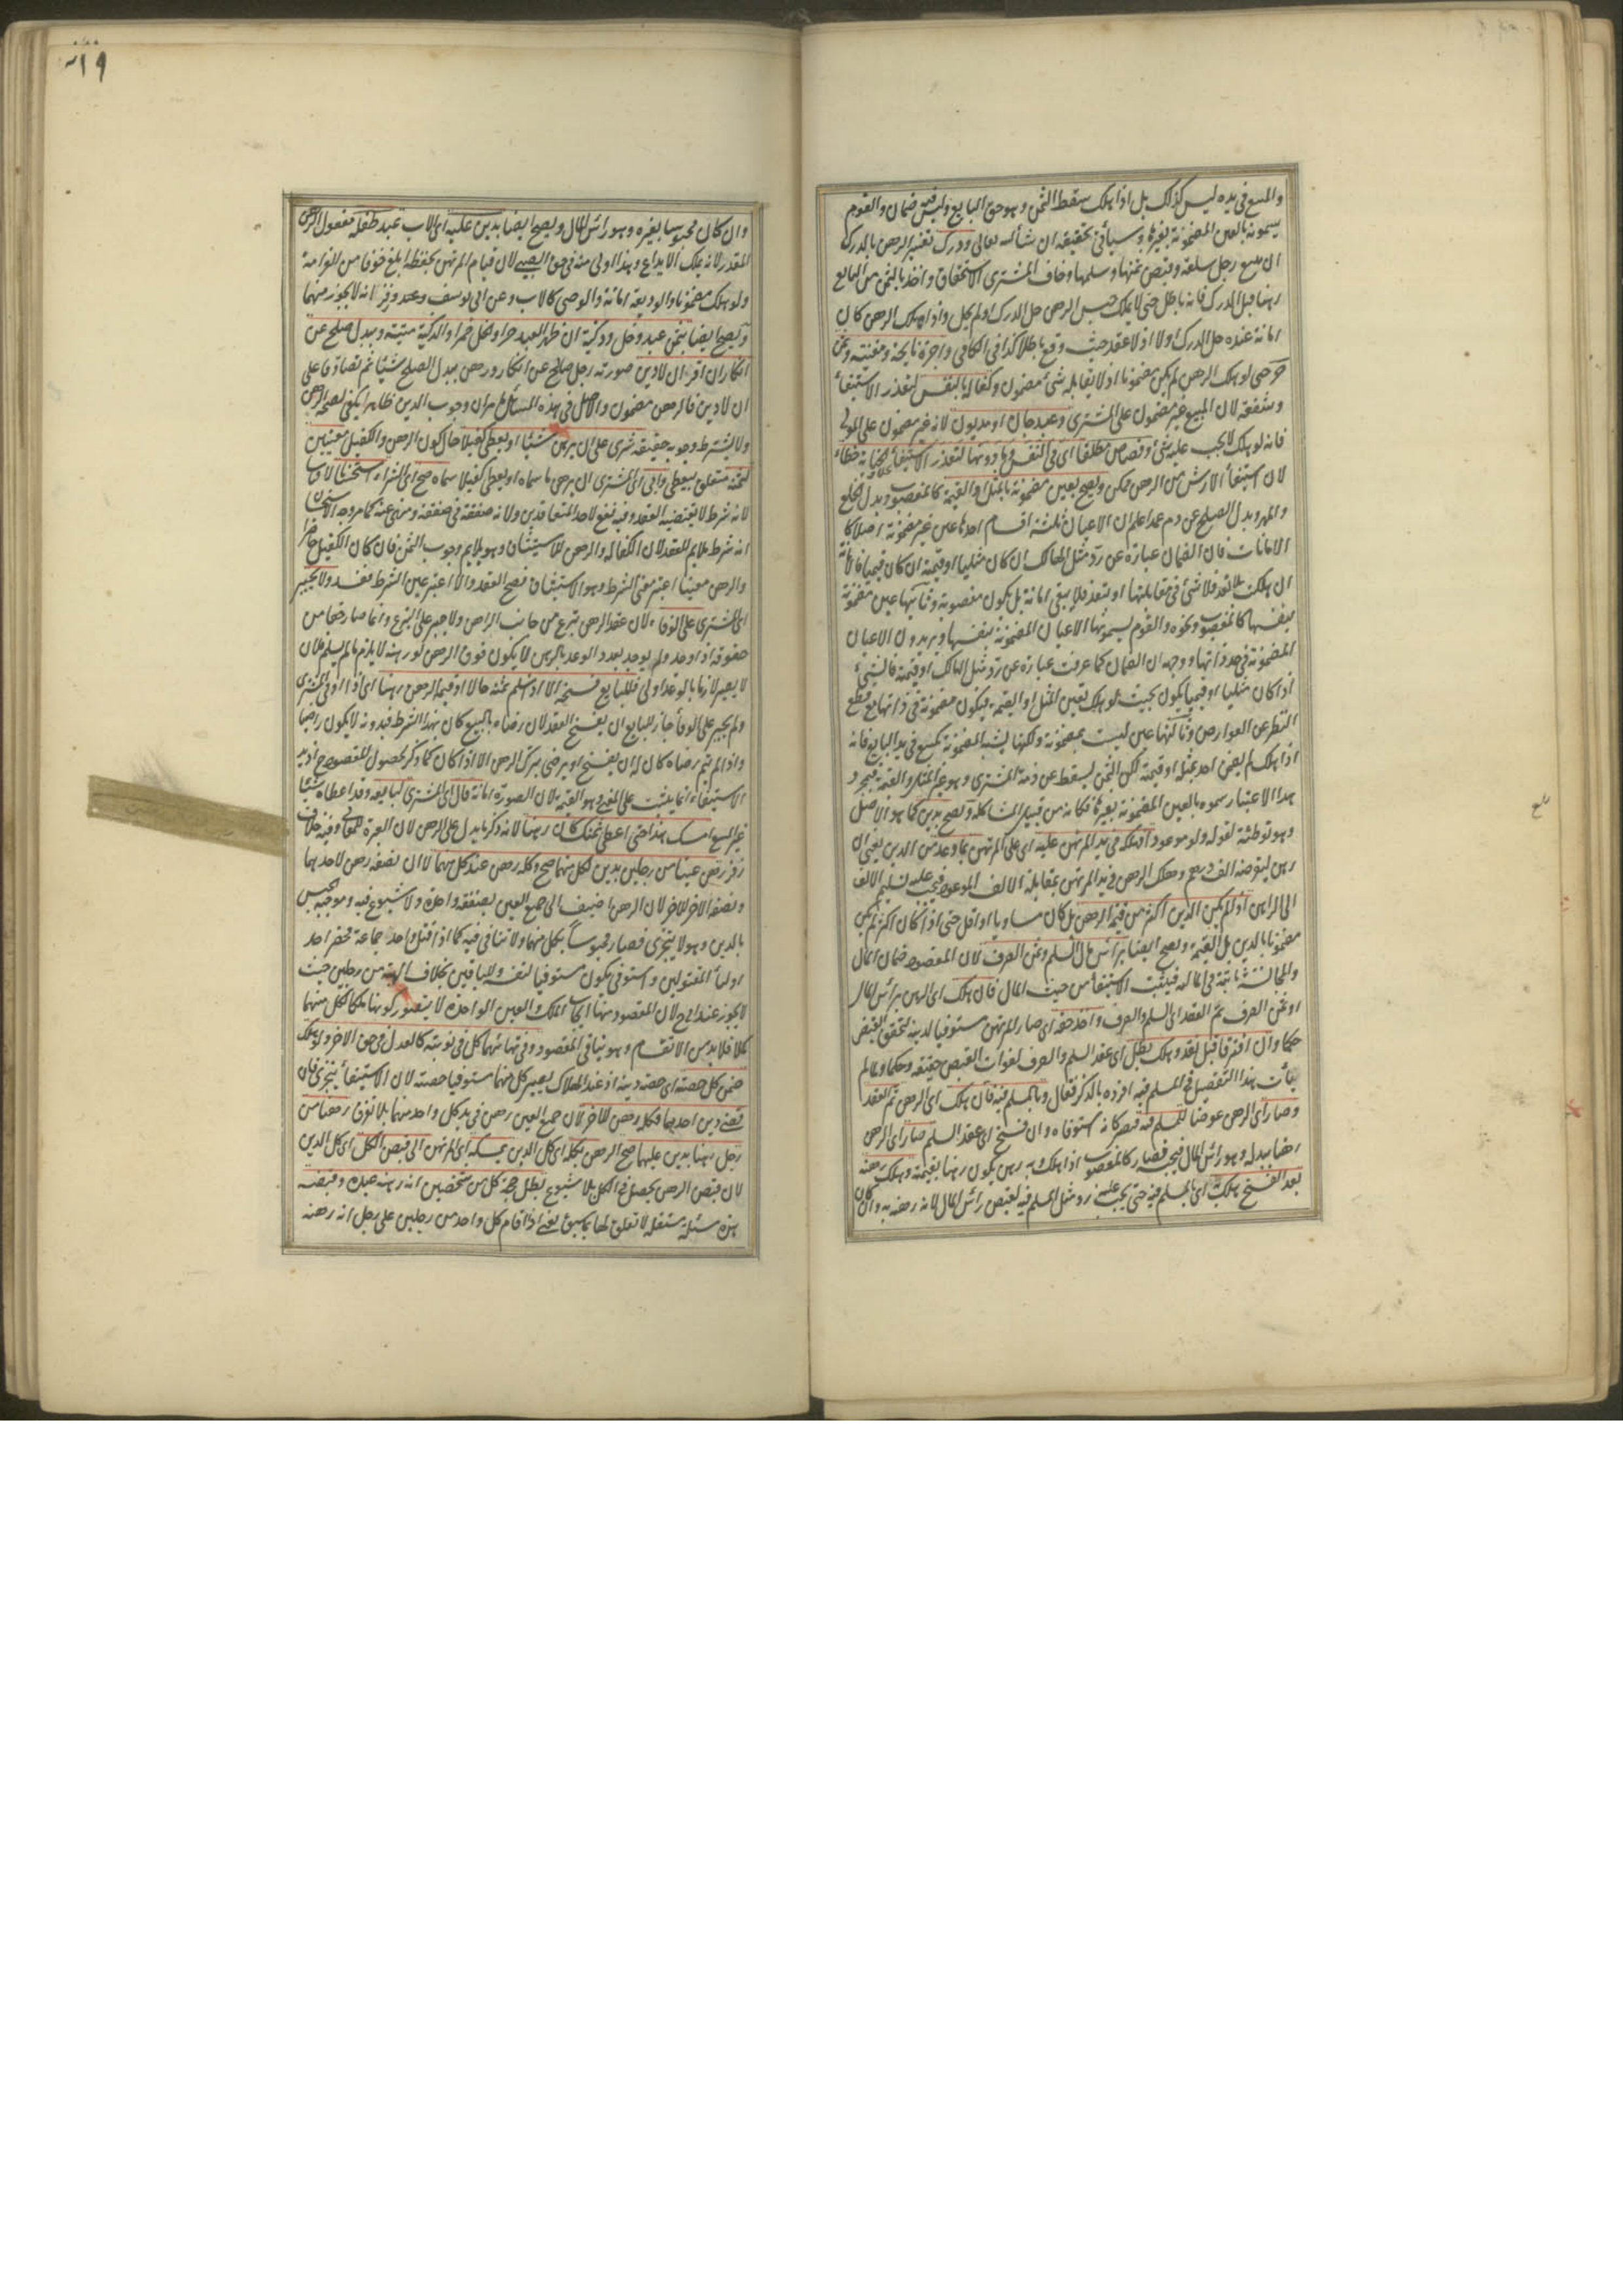 والمبيع في يده ليس كذلك بل اذا هلك سقط الثمن وهو حق البايع وليس فيه ضمان والقوم
يسمونه بالعين المضمونة بغيرها وسيأتي تحقيقه ان شاء الله تعالى ودرك تفسير الرهن بالدرك
ان يبيع رجل سلعة وقبض ثمنها وسلمها وخاف المشترى الاستحقاق واخذ بالثمن من البايع
رهنا قبل الدرك فانه باطل حتى لا يملك حبس الرهن حل الدرك او لم يحل واذا هلك الرهن كان
امانة عنده حل الدرك اولا اذ لا عقد حيث وقع باطلا كذا في الكافي واجرة نايحة ومغنية وثمن
حر حتى لو هلك الرهن لم يكن مضمونا اذ لا يقابله شئ مضمون وكفالة بالنفس لتعذر الاستيفاء
وشفعة لان المبيع غير مضمون على المشترى وعبد جان او مديون لانه غير مضمون على المولى
فانه لو هلك لا يجب عليه شئ وقصاص مطلقا اى في النفس وما دونها لتعذر الاستيفاء بخلاف الجناية خطاء
لان استيفاء الارش من الرهن ممكن ويصح بعين مضمونة بالمثل او القيمة كالمغصوب وبدل الخلع
والمهر وبدل الصلح عن دم عمد اعلم ان الاعيان ثلثة اقسام احدها عين غير مضمونة اصلا كا
الامانات فان الضمان عبارة عن رد مثل الهالك ان كان مثليا او قيمته ان كان قيميا فالامانة
ان هلكت بلا تعد فلا شئ في مقابلتها او بتعد فلا يبقى امانة بل يكون مغصوبة وثانيها عين مضمونة
بنفسها كالمغصوب ونحوه والقوم يسمونها الاعيان المضمونة بنفسها ويريدون الاعيان
المضمونة في حد ذاتها ووجهه ان الضمان كما عرفت عبارة عن رد مثل الهالك او قيمته فالشئ
اذا كان مثليا او قيميا يكون بحيث لو هلك تعين المثل او القيمة فيكون مضمونة في ذاتها مع قطع
النظر عن العوارض وثالثها عين ليست بمضمونة ولكنها يشبه المضمونة كمبيع في يد البايع فانه
اذا هلك لم يضمن احد بمثله او قيمته لكن الثمن يسقط عن ذمة المشترى وهو غير المثل والقيمة فبمجرد
هذا الاعتبار سموه بالعين المضمونة بغيرها فكانه من قبيل المشاكلة ويصح بدين كما هو الاصل
وهو توطئة لقوله ولو موعودا فهلكه في يد المرتهن عليه اى على المرتهن بما وعد من الدين يعنى ان
رهن ليقرضه الف درهم وهلك الرهن في يد المرتهن بمقابلة الالف الموعود فيجب عليه تسليم الالف
الى الراهن اذا لم يكن الدين اكثر من قيمة الرهن بل كان مساويا او اقل حتى اذا كان اكثر لم يكن
مضمونا بالدين بل القيمة ويصح ايضا برأس مال السلم وثمن الصرف لان المقصود ضمان المال
والمجانسة ثابتة في المالية فيثبت الاستيفاء من حيث المال فان هلك اى الرهن برأس المال
او ثمن الصرف تم العقد اى السلم والصرف واخذ حقه اى صار المرتهن مستوفيا لدينه لتحقق القبض
حكما وان افترقا قبل نقد وهلك بطل اى عقد السلم والصرف لفوات القبض حقيقة وحكما ولما لم
يتأت هذا التفصيل في المسلم فيه افرده بالذكر فقال وبالمسلم فيه فان هلك اى الرهن تم العقد
وصار اى الرهن عوضا للمسلم فيه فيصير كانه استوفاه وان فسخ اى عقد السلم صار اى الرهن
رهنا ببدله وهو رأس المال فيحبسه فصار كالمغصوب اذا هلك وبه رهن يكون رهنا بقيمته وهلك رهنه
بعد الفسخ هلك به اى بالمسلم فيه حتى يجب عليه رد مثل المسلم فيه ليقبض رأس المال لانه رهنه به وان كان
١٩
وان كان محبوسا بغيره وهو رأس المال ويصح ايضا بدين عليه اى الاب عبد طفله مفعول الرهن
المقدر لانه يملك الايداع وهذا اولى منه في حق الصبى لان قيام المرتهن بحفظه ابلغ خوفا من الغرامة
ولو هلك مضمونا والوديعة امانة والوصى كالاب وعن ابى يوسف وعند زفر انه لا يجوز منهما
ويصح ايضا بثمن عبد وخل وذكية ان ظهر العبد حرا والخل خمرا والذكية ميتة وببدل صلح عن
انكار ان اقر ان لا دين صورته رجل صالح عن انكار ورهن ببدل الصلح شيئا ثم تصادقا على
ان لا دين فالرهن مضمون والاصل في هذه المسائل ما مر ان وجوب الدين ظاهرا يكفى لصحة الرهن
ولا يشترط وجوبه حقيقة شرى على ان يرهن شيئا او يعطى كفيلا حال كون الرهن والكفيل معينين
لثمنه متعلق بيعطى وابى اى المشترى ان يرهن ما سماه او يعطى كفيلا سماه صح اى الشراء استحسانا لا قياسا
لانه شرط لا يقتضيه العقد وفيه نفع لاحد المتعاقدين ولانه صفقة في صفقة ومنهى عنه كما مر وجه الاستحسان
انه شرط ملايم للعقد لان الكفالة والرهن للاستيثاق وهو يلايم وجوب الثمن فان كان الكفيل حاضرا
والرهن معينا اعتبر معنى الشرط وهو الاستيثاق فصح العقد والا اعتبر عين الشرط ففسد ولا يجبر
اى المشترى على الوفاء لان عقد الرهن تبرع من جانب الراهن ولا جبر على التبرع وانما صار حقا من
حقوقه اذا وجد ولم يوجد بعد والوعد بالرهن لا يكون فوق الرهن لو رهنه لا يلزم ما لم يسلم فلان
لا يصير لازما بالوعد اولى فللبايع فسخه الا اذا سلم ثمنه حالا او قيمة الرهن رهنا اى اذا ابى المشترى
ولم يجبر على الوفاء جاز للبايع ان يفسخ العقد لان رضاه بالبيع كان بهذا الشرط فبدونه لا يكون راضيا
واذا لم يتم رضاه كان له ان يفسخ او يرضى بترك الرهن الا اذا كان كما ذكر لحصول المقصود ح اذ يد
الاستيفاء انما يثبت على المعنى وهو القيمة لان الصورة امانة قال اى المشترى لبايعه وقد اعطاه شيئا
غير المبيع امسك هذا حتى اعطى ثمنك كان رهنا لانه ذكر ما يدل على الرهن لان العبرة للمعانى وفيه خلاف
زفر رهن عينا من رجلين بدين لكل منهما صح وكله رهن عند كل منهما لا ان نصفه رهن لاحدهما
ونصفه الاخر للاخر لان الرهن اضيف الى جميع العين بصفقة واحدة ولا شيوع فيه وموجبه الحبس
بالدين وهو لا يتجزى فصار محبوسا بكل منهما ولا تنافى فيه كما اذا قتل واحد جماعة فحضر احد
اولياء المقتولين واستوفى يكون مستوفيا لنفسه وللباقين بخلاف الهبة من رجلين حيث
لا يجوز عند ابى ح لان المقصود منها ايجاب الملك والعين الواحدة لا يتصور كونها ملكا لكل منهما
كملا فلا بد من الانقسام وهو ينافى المقصود وفى تهايئهما كل في نوبته كالعدل في حق الاخر ولو هلك
ضمن كل حصته اى حصة دينه اذ عند الهلاك يصير كل منهما مستوفيا حصته لان الاستيفاء يتجزى فان
قضى دين احدهما فكله رهن للاخر لان جميع العين رهن في يد كل واحد منهما بلا تفرق رهنا من
رجل رهنا بدين عليهما صح الرهن بكله اى كل الدين يمسكه اى المرتهن الى قبض الكل اى كل الدين
لان قبض الرهن يحصل في الكل بلا شيوع بطل حجة كل من شخصين انه رهنه عبده وقبضه
هذه مسئلة مستقلة لا تعلق لها بما سبق يعنى اذا اقام كل واحد من رجلين على رجل انه رهنه